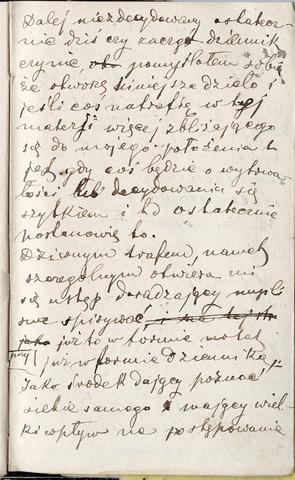 Dalej niezdecydowany ostatecz-
nie dziś czy zacząć dziennik
czy nie, pomyślałem sobie
że otworzę niniejsze dzieło i
jeśli coś natrafię w tej
materji więcej zbliżającego
się do mojego położenia to
jest gdy coś będzie o wytrwa-
łości lub decydowaniu się
szybkiem i td ostatecznie
postanowię to.
Dziwnym trafem, nawet
szczególnym otwiera mi
się ustęp doradzający myśli
swe spisywać,
już to w formie notat
już w formie dziennika,
jako środek dający poznać
siebie samego i mający wiel-
ki wpływ na postępowanie